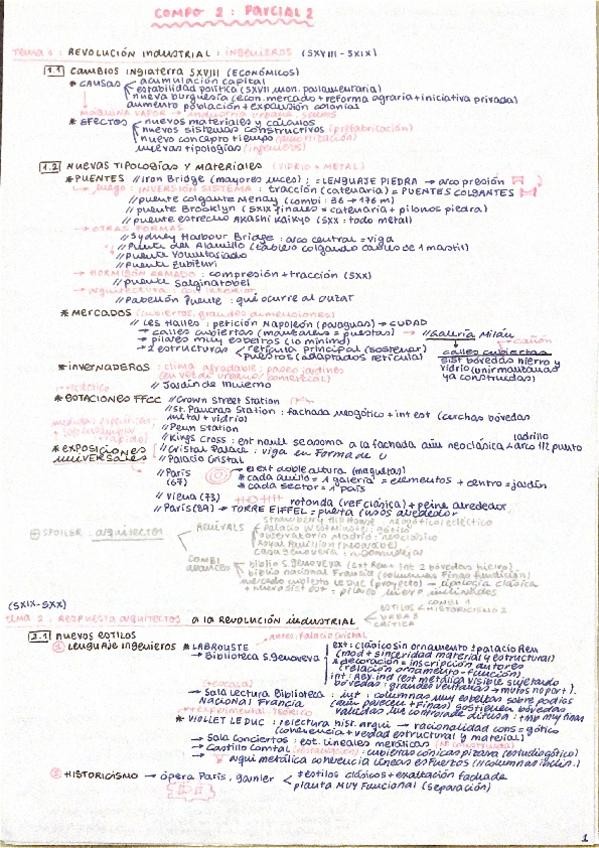 COMPO 2 : PARCIAL 2
TEMA 1 : REVOLUCIÓN INDUSTRIAL : INGENIEROS (SXVIII - SXIX)
1.1 CAMBIOS INGLATERRA SXVIII (ECONÓMICOS)
* CAUSAS acumulación capital
estabilidad política (SXVII mon. parlamentaria)
nueva burguesía (econ. mercado + reforma agraria + iniciativa privada)
aumento población + expansión colonial
MÁQUINA VAPOR → industria
* EFECTOS nuevos materiales y cálculos
nuevos sistemas constructivos (prefabricación)
nuevo concepto tiempo
nuevas tipologías (ingenieros)
1.2 NUEVAS TIPOLOGÍAS Y MATERIALES (VIDRIO + METAL)
* PUENTES // Iron Bridge (mayores luces) ; = LENGUAJE PIEDRA → arco presión
→ luego : INVERSIÓN SISTEMA : tracción (catenaria) = PUENTES COLGANTES
// puente colgante Menay
// puente Brooklyn (SXIX finales = catenaria + pilonos piedra)
// puente estrecho Akashi Kaikyo (SXX : todo metal)
→ OTRAS FORMAS
// Sydney Harbour Bridge : arco central = viga
// Puente del Alamillo (tablero colgando cables de 1 mástil)
// puente voluntariado
// puente zubizuri
→ HORMIGÓN ARMADO : compresión + tracción (SXX)
// puente Salginatobel
→ arquitectura : con interior
// Pabellón Puente : qué ocurre al cruzar
* MERCADOS (cubiertos, grandes dimensiones)
// Les Halles : petición Napoleón (paraguas) → CIUDAD
→ calles cubiertas
→ pilares muy esbeltos (lo mínimo)
→ 2 estructuras retícula principal (sostener)
puestos (adaptados retícula)
// Galería Milán
calles cubiertas
sist bóvedas hierro y
vidrio (unir manzanas
ya construidas)
* INVERNADEROS : clima agradable : paseo jardines
// Jardín de Invierno
* ESTACIONES FFCC // Crown Street Station
// St. Pancras Station : fachada neogótico + int est (cerchas bóvedas
metal + vidrio)
// Penn Station
// Kings Cross : est nave se asoma a la fachada aún neoclásica + arco 1/2 punto
ladrillo
* EXPOSICIONES UNIVERSALES // Cristal Palace : viga en forma de U
// Palacio Cristal
// París (67) * el ext doble altura (maquetas)
* cada anillo = 1 galería = elementos + centro = jardín
* cada sector = 1 país
// Viena (73) rotonda (ref clásica) + peine alrededor
// París (89) → TORRE EIFFEL = puerta (usos alrededor)
SPOILER : arquitectos
REVIVALS Strawberry Hill House : neogótico ecléctico
Observatorio Madrid : neoclásico
Royal Pavilion
COMBI avances biblio S. Genoveva (ext Ren + int 2 bóvedas hierro)
biblio nacional Francia (columnas finas fundición)
(SXIX - SXX)
TEMA 2 : RESPUESTA ARQUITECTOS a la REVOLUCIÓN INDUSTRIAL
ESTILOS COMBI 1
HISTORICISMO 2
URBAN 3
CRÍTICA
2.1 NUEVOS ESTILOS
antes : Palacio Cristal
1 LENGUAJE INGENIEROS * LABROUSTE
→ Biblioteca S. Genoveva
ext : clásico sin ornamento ≠ palacio Ren
(mod + sinceridad material y estructural)
* decoración = inscripción autores
(relación ornamento - función)
int : Rev. Ind (est metálica visible sujetando
bóvedas : grandes ventanas → muros no port.)
→ Sala Lectura Biblioteca
NACIONAL FRANCIA
int : columnas muy esbeltas sobre podios
(aún parecen + finas) sostienen bóvedas
* VIOLLET LE DUC : relectura hist. arqui → racionalidad cons = gótico
(coherencia + verdad estructural y material)
→ Sala Conciertos : est. lineales metálicas (no construida)
→ Castillo Comtal : cubiertas cónicas pizarra (estudio gótico)
2 HISTORICISMO → ópera París, Garnier
* estilos clásicos + exaltación fachada
planta MUY FUNCIONAL (separación)
1